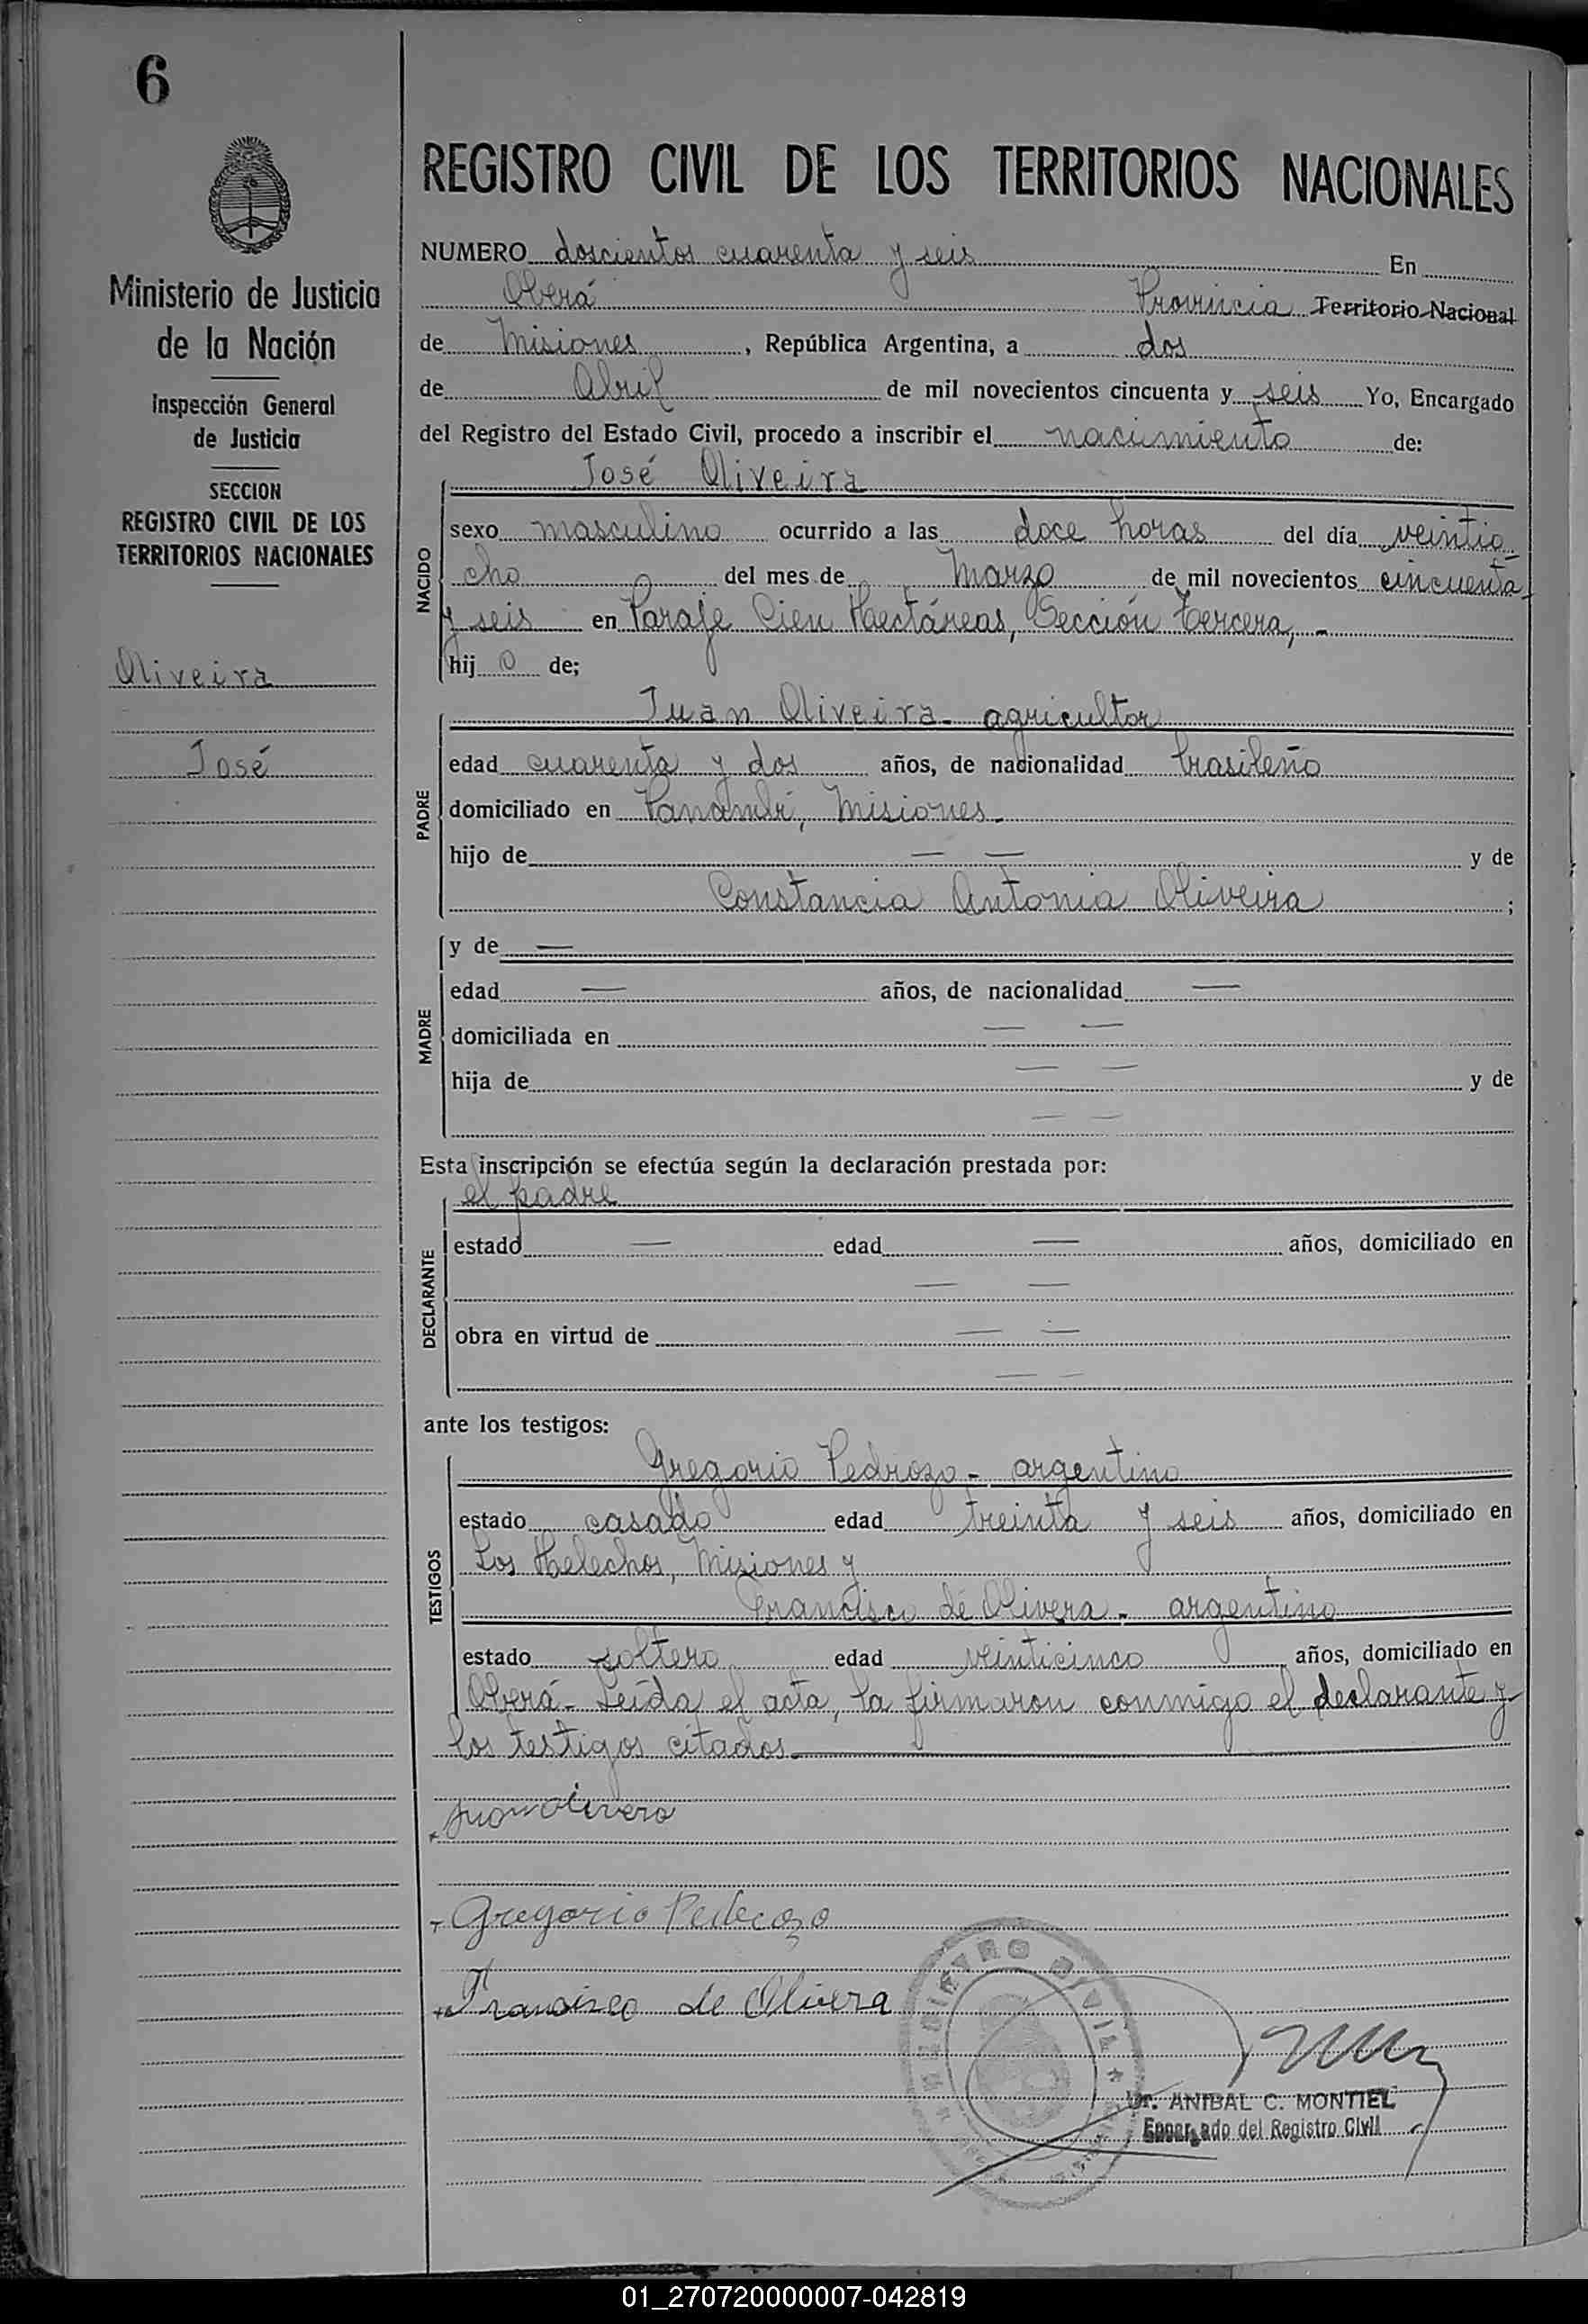 6
Ministerio de Justicia
de la Nación
Inspección General
de Justicia
SECCION
REGISTRO CIVIL DE LOS
TERRITORIOS NACIONALES
Oliveira
José
REGISTRO CIVIL DE LOS TERRITORIOS NACIONALES
NUMERO doscientos cuarenta y seis En
Oberá Provincia Territorio Nacional
de Misiones, República Argentina, a dos
de Abril de mil novecientos cincuenta y seis Yo, Encargado
del Registro del Estado Civil, procedo a inscribir el nacimiento de:
José Oliveira
NACIDO
sexo masculino ocurrido a las doce horas del día veintio-
cho del mes de Marzo de mil novecientos cincuenta
y seis en Paraje Cien Hectáreas, Sección Tercera, -
hij o de;
Juan Oliveira - agricultor
PADRE
edad cuarenta y dos años, de nacionalidad brasileño
domiciliado en Panambí, Misiones -
hijo de — — y de
Constancia Antonia Oliveira ;
MADRE
y de —
edad — años, de nacionalidad —
domiciliada en — —
hija de — — y de
— —
Esta inscripción se efectúa según la declaración prestada por:
el padre
DECLARANTE
estado — edad — años, domiciliado en
— —
obra en virtud de — —
— —
ante los testigos:
Gregorio Pedrozo - argentino
TESTIGOS
estado casado edad treinta y seis años, domiciliado en
Los Helechos, Misiones y
Francisco de Olivera - argentino
estado soltero edad veinticinco años, domiciliado en
Oberá - Leída el acta, la firmaron conmigo el declarante y
los testigos citados —
Juan Olivera
Gregorio Pedrozo
Francisco de Olivera
REGISTRO CIVIL
Dr. ANIBAL C. MONTIEL
Encargado del Registro Civil
01_270720000007-042819